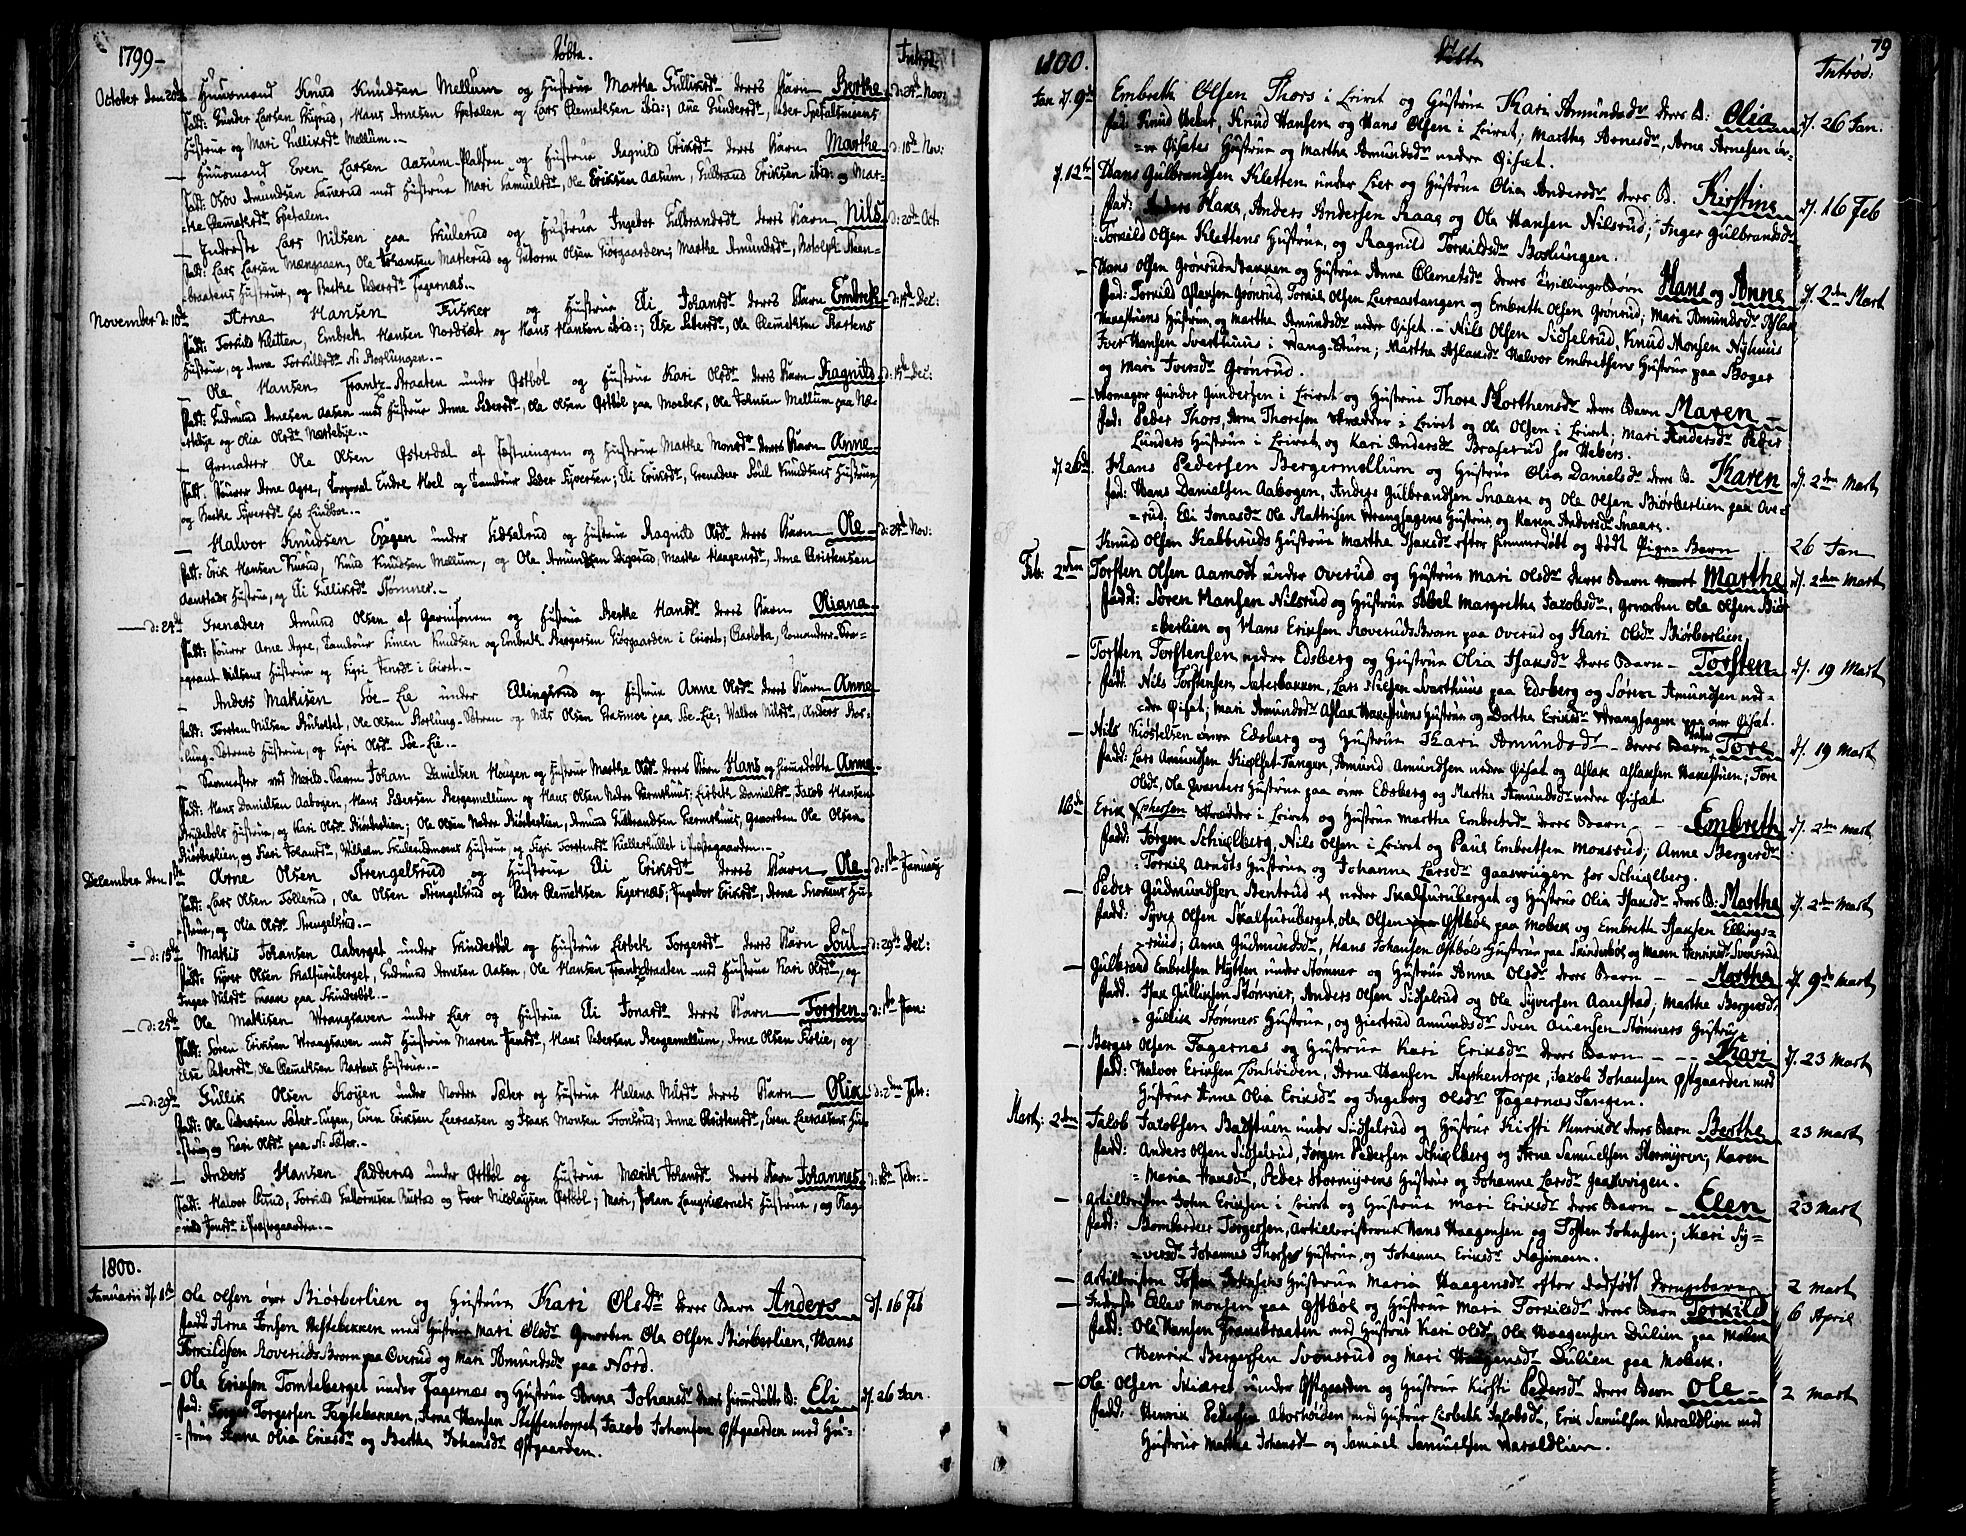 1799-
Døbte.
Introd:
October den 20de Huusmand Knud Knudsen Mellum og Hustrue Marthe Gulliksdr deres Barn Berthe d: 24de Nov:
Fadd: Gunder Larsen Skyrud, Hans Arnesen Spetalen og Lars Clemetsen ibid; Ane Gundersdr, Peder Spetalmoens
Hustrue og Mari Gulliksdr Mellum.-
- Huusmand Even Larsen Aasum-Pladsen og Hustrue Ragnild Eriksdr deres Barn Marthe d: 10de Nov:
Fadd: Olov Amundsen Saterud med Hustrue Mari Samuelsdr, Ole Eriksen Aasum, Gulbrand Eriksen ibid: og Mar-
the Clemetsdr Spetalen.
- Inderste Lars Nilsen paa Skulerud og Hustrue Ingebor Gulbrandsdr deres Barn Nils d: 20de Oct:
Fadd: Lars Larsen Mangaaen, Ole Johansen Matterud og Guttorm Olsen Kiørgaarden; Marthe Amundsdr, Rodolph Steen-
braatens Hustrue, og Berthe Pedersdr Fagernæs.-
November d: 10de Arne Hansen Fisker og Hustrue Eli Johansdr deres Barn Embrek d: 15de Dec:
Fadd: Torkild Kletten, Embrek Hansen Nordset og Hans Hansen ibid:; Else Pedersdr, Ole Clemetsen Kastens
Hustrue, og Anne Torkildsdr N: Borlungen.-
- Ole Hansen Frantz-Braaten under Østbøl og Hustrue Kari Olsdr deres Barn Ragnild d: 15de Dec:
Fadd: Gudmund Arnesen Aasen med Hustrue Anne Pedersdr, Ole Olsen Østbøl paa Moebek, Ole Johnsen Mellum paa Næ-
stebye og Olia Olsdr Næstebye.-
- Grenadeer Ole Olsen Østerdal af Fæstningen og Hustrue Marthe Monsdr deres Barn Anne
Fadd: Fourer Arne Agre, Corporal Endre Moel og Tambour Peder Syversen; Eli Eriksdr, Grenadeer Poul Knudsens Hustrue,
og Berthe Syversdr hos Lindboe.-
- Halvor Knudsen Engen under Sidselrud og Hustrue Ragnild Olsdr deres Barn Ole d: 24de Nov:
Fadd: Erik Hansen Knurud, Knud Knudsen Mellum, og Ole Amundsen Digerud, Marthe Haagensdr, Arne Christensen
Aanstads Hustrue, og Eli Gulliksdr Stømner.-
- d: 24de Grenadeer Amund Olsen af Garnisonen og Hustrue Berthe Hansdr deres Barn Oliana
Fadd: Fourer Arne Agre, Tambour Simen Knudsen og Embrek Bergersen Kiørgaarden i Leiret; Charlotta, Commandeer-Ser-
geant Nilsens Hustrue og Sigri Arnesdr i Leiret.-
- Anders Mathisen Soe-Eie under Ellingsrud og Hustrue Anne Olsdr deres Barn Anne
Fadd: Torsten Nilsen Skuholtet, Ole Olsen Borlung-Sætren og Nils Olsen Grasmoe paa Soe-Eie; Walbor Nilsdr, Anders Bor-
lung-Sætrens Hustrue, og Sigri Olsdr Soe-Eie.-
Johan Danielsen Haugen og Hustrue Marthe Olsdr deres Børn Hans og hiemmedøbte Anne
Fadd: Hans Danielsen Aabogen, Hans Pedersen Bergemellum og Hans Olsen Nedre Værnshuus; Lisbeth Danielsdr, Jacob Hansen
Hustrue, og Kari Olsdr Biørberlien; Ole Olsen Nedre Biørberlien, Amund Gulbrandsen Hermshuus, Gevorben Ole Olsen
Biørberlien og Kari Johansdr, Wilhelm Skulerudmoens Hustrue, og Sigri Torstensdr Kiellerhullet i Præstegaarden.-
December den 1ste Arne Olsen Strengelsrud og Hustrue Eli Eriksdr deres Barn Ole d: 1ste January
Fadd: Lars Olsen Follerud, Ole Olsen Strengelsrud og Peder Clemetsen Fagernæs; Ingebor Eriksdr, Arne Snorkens Hu-
strue, og Olia Olsdr Strengelsrud.-
- d: 15de Mathis Johansen Aaberget under Skinderbøl og Hustrue Lisbeth Torgersdr deres Barn Poul d: 29de Dec:
Fadd: Syver Olsen Skalfuruberget, Gudmund Arnesen Aasen, Ole Hansen Frantzbraaten med Hustrue Kari Olsdr, og
Inger Nilsdr Snaae paa Skinderbøl.-
- d: 25de Ole Mathisen Wrangsaven under Eier og Hustrue Eli Jonasdr deres Barn Torsten d: 1ste Jan:
Fadd: Søren Eriksen Wrangsaven med Hustrue Maren Jansdr, Hans Pedersen Bergemellum, Arne Olsen Fislie, og
Else Pedersdr, Ole Clemetsen Kastens Hustrue.-
- d: 29de Gullik Olsen Koyen under Nordre Sæter og Hustrue Helena Nilsdr deres Barn Olia d: 2den Febr:
Fadd: Ole Pedersen Sæter-Eugen, Even Eriksen Leeraasen og Isaak Monsen Tronsrud; Anne Christensdr, Even Leeraasens Hu-
strue, og Kari Olsdr paa N: Sæter.-
- Anders Hansen Ladderud under Østbøl og Hustrue Marith Johansdr deres Barn Johannes d: 16de Febr:-
Fadd: Halvor Ourud, Torkild Guttormsen Rustad og Iver Nicolaysen Østbøl; Mari, Johan Langkiærnets Hustrue, og Rag-
nild Jonsdr i Præstegaarden.-
1800.
Januarii d. 1ste Ole Olsen øvre Biørberlien og Hustrue Kari Olsdr deres Barn Anders d. 16 Feb
Fadd: Arne Jonsen Hestebekken med Hustrue Mari Olsdr Gevorben Ole Olsen Biørberlien, Hans
Torkildsen Roveruds Broen paa Overud og Mari Amundsdr paa Nord.
- Ole Eriksen Tomteberget under Fagernæs og Hustrue Anne Johansdr deres hiemdøbte B: Eli d. 26 Jan.
Fad: Torger Torgersen Fagtebakken, Arne Hansen Steffentorpet, Jacob Johansen Østgaarden med Hu-
strue Anne Olia Eriksdr og Berthe Johansdr Østgaarden.
1800.
Døbte
Introd:
79
Jan d. 9de Embreth Olsen Thors i Leiret og Hustrue Kari Amundsdr deres B: Olia d. 26 Jan:
Fad: Knud Weber, Knud Hansen og Hans Olsen i Leiret; Marthe Arnesdr, Arne Arnesen øv-
re Øisets Hustrue og Marthe Amundsdr nedre Øiset.
d. 12te Hans Gulbrandsen Kletten under Eier og Hustrue Olia Andersdr deres B. Kirstine d. 16 Feb
Fad: Anders Haxe, Anders Andersen Raae og Ole Hansen Nilsrud; Inger Gulbrandsdr
Torkild Olsen Klettens Hustrue, og Ragnild Torkildsdr Boslungen.
- Hans Olsen Grønrud-Bakken og Hustrue Anne Clemetsdr deres Tvillinge Børn Hans og Anne d. 2den Mart
Fad: Torkild Aslaksen Grønrud, Torkil Olsen Leeraastangen og Embreth Olsen Grønrud; Mari Amundsdr Aslak
Haxestuens Hustrue, og Martha Amundsdr nedre Øiset. - Nils Olsen Sidselrud, Knud Monsen Nyhuus
Iver Hansen Svarthuus i Wang-Buen; Marthe Aslaksdr Halvor Embrethsens Hustrue paa Skoger
og Mari Iversdr Grønrud.
- Skomager Gunder Gundersen i Leiret og Hustrue Thore Morthensdr deres Barn Maren -
Fad: Peder Thors, Arne Thoresen Skrædder i Leiret og Ole Olsen i Leiret; Mari Andersdr Peder
Lunders Hustrue i Leiret, og Kari Andersdr Braserud hos Webers.
d. 26de Hans Pedersen Bergermellum og Hustrue Olia Danielsdr deres B. Karen d. 2den Mart
Fad: Hans Danielsen Aabogen, Anders Gulbrandsen Snaare og Ole Olsen Biørberlien paa Ove-
rud; Eli Jonasdr Ole Mathisen Wrangsagens Hustrue, og Karen Andersdr Snaare.
- Knud Olsen Kabberuds Hustrue Marthe Isaksdr efter hiemmedøbt og dødt Pige-Barn 26 Jan
Feb. 2den Torsten Olsen Aamodt under Overud og Hustrue Mari Olsdr deres Barn Marthe d. 2den Mart
Fadd: Søren Hansen Nilsrud og Hustrue Abel Margretha Jacobsdr, Gevorben Ole Olsen Biør-
berlien og Hans Eriksen Roveruds Broen paa Overud og Kari Olsdr Biørberlien.
- Torsten Torstensen nedre Edsberg og Hustrue Olia Isaksdr deres Barn - Torsten d. 19 Mart
Fad: Nils Torstensen Sæterbakken, Lars Nielsen Svarthuus paa Edsberg og Søren Amundsen ned-
re Øiset; Mari Amundsdr Aslak Haxestuens Hustrue og Dorthe Eriksdr Wrangsagen paa øvre Øiset.
- Nils Kiøstelsen øvre Edsberg og Hustrue Kari Amundsdr - deres Barn Tore d. 19 Mart
Fadd: Lars Amundsen Kiølset-Tangen, Amund Amundsen nedre Øiset og Aslak Aslaksen Haxestuen; Tore
Olsdr, Ole Qventers Hustrue paa øvre Edsberg og Marthe Amundsdr nedre Øiset.
16de Erik Ephersen Skrædder i Leiret og Hustrue Martha Embretsdr deres Barn - - Embreth d. 2den Mart
Fadd: Jørgen Schiølberg, Nils Olsen i Leiret og Paul Embrethsen Monsrud; Anne Bergersdr
Torkil Arndts Hustrue og Johanna Larsdr Gaasvrigen hos Schiølberg.
- Peder Gudmundsen Bentrud ell neder Skalfuruberget og Hustrue Olia Isaksdr deres B: Marthe d. 2den Mart
Fadd: Syver Olsen Skalfuruberget, Ole Olsen Østbøl paa Mobek og Embreth Isaksen Ellings-
rud; Anna Gudmundsdr, Hans Johansen Østbøls Hustrue paa Skinderbøl og Maren Henriksdr Svensrud
- Gulbrand Embrethsen Hytten under Stømner og Hustrue Anne Olsdr deres Barn - - Marthe d. 9de Mart
Fadd. Isac Gulliksen Stømner, Anders Olsen Sidselrud og Ole Syversen Aanstad, Marthe Borgersdr
Gullik Stømners Hustrue, og Giertrud Amundsdr Sven Auensen Stømners Hustrue
- Berger Olsen Fagernæs og Hustrue Kari Eriksdr deres Barn - - - Kari d. 23 Mart
Fadd: Halvor Eriksen Lonhoiden, Arne Hansen Stephentorpe, Jakob Johansen Østgaarden med
Hustrue Anne Olia Eriksdr og Ingeborg Olsdr Fagernæs Tangen.
Mart: 2den Jakob Jakobsen Badstuen under Sidselrud og Hustrue Kirsti Henriksdr deres Barn Berthe 23 Mart
Fadd: Anders Olsen Sidselrud, Jørgen Pedersen Schiølberg og Arne Samuelsen Stormyren; Karen
Maria Hansdr, Peder Stormyrens Hustrue og Johanne Larsdr Gaasvrigen.
- Artilleristen John Eriksen i Leiret og Hustrue Mari Eriksdr deres Barn - Elen 23 Mart
Fadd: Bombardeer Torgersen, Artilleristerne Hans Haagensen og Tosten Johnsen; Mari Sy-
versdr Johannes Thorses Hustrue og Johanna Eriksdr Næsimoen.
- Artilleristen Tosten Johnsens Hustrue Maria Haagensdr efter dødfødt Drengebarn 2 Mart
- Inderste Elles Monsen paa Østbøl og Hustrue Mari Torkilsdr deres Barn Torkild 6 April
Fadd: Ole Hansen Fransbraaten med Hustrue Kari Olsdr, Ole Haagensen Dulien paa Mobek
Henrik Bergersen Svensrud og Mari Haagensdr Dulien paa Mobek.
- Ole Olsen Skiæret under Østgaarden og Hustrue Kirsti Pedersdr deres Barn Ole - 2 Mart
Fadd: Henrik Pedersen Aborhoiden med Hustrue Lisbeth Jakobsdr, Erik Samuelsen Haraldlien med
Hustrue Marthe Johansdr og Samuel Samuelsen Haraldlien.